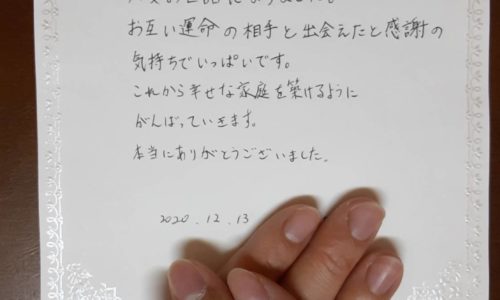 お互い運命の相手と出会えたと感謝の
気持ちでいっぱいです。
これから幸せな家庭を築けるように
がんばっていきます。
本当にありがとうございました。
2020.12.13